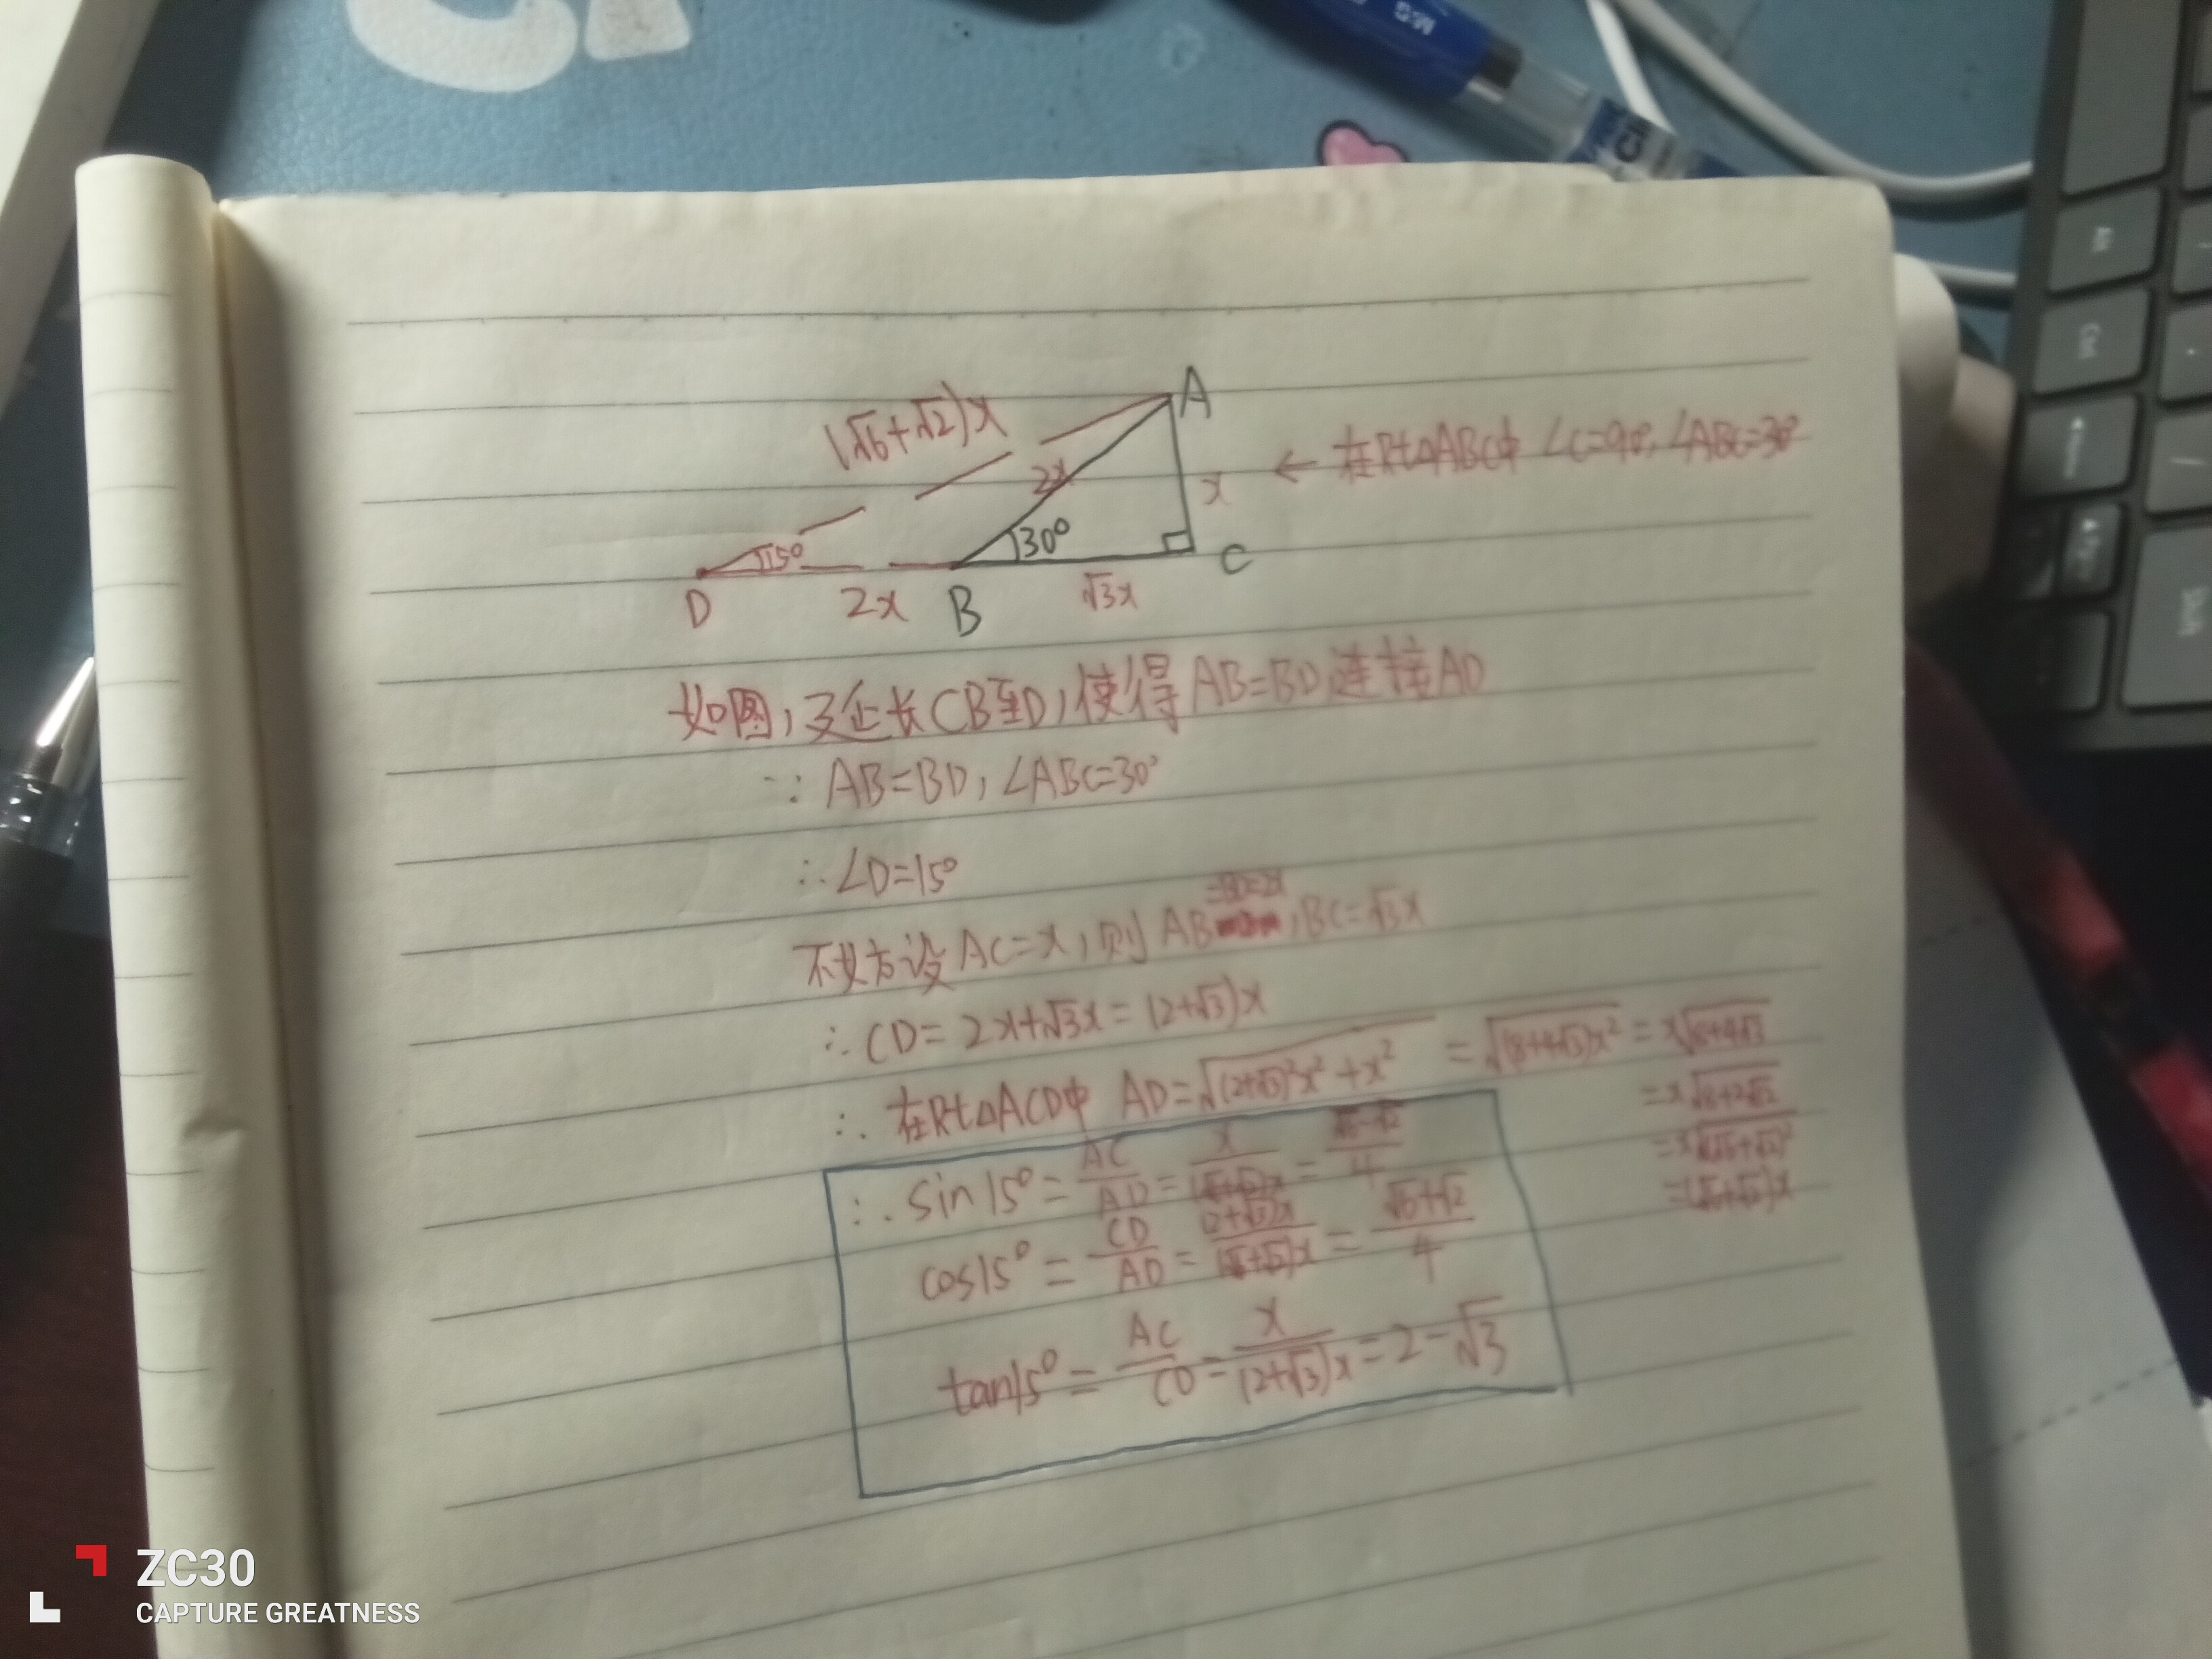 A
(√6+√2)x
2x
x
← 在Rt△ABC中 ∠C=90°, ∠ABC=30°
15°
30°
D
2x
B
√3x
C
如图,延长CB至D,使得AB=BD连接AD
∵ AB=BD, ∠ABC=30°
∴ ∠D=15°
不妨设AC=x,则AB=BD=2x, BC=√3x
∴ CD=2x+√3x=(2+√3)x
∴ 在Rt△ACD中 AD=√((2+√3)²x²+x²) =√((8+4√3)x²) =x√(8+4√3)
=x√(8+2√12)
=x√((√6+√2)²)
=(√6+√2)x
∴ sin15°=AC/AD=x/((√6+√2)x)=(√6-√2)/4
cos15°=CD/AD=((2+√3)x)/((√6+√2)x)=(√6+√2)/4
tan15°=AC/CD=x/((2+√3)x)=2-√3
Alt
Ctrl
Shift
ZC30
CAPTURE GREATNESS